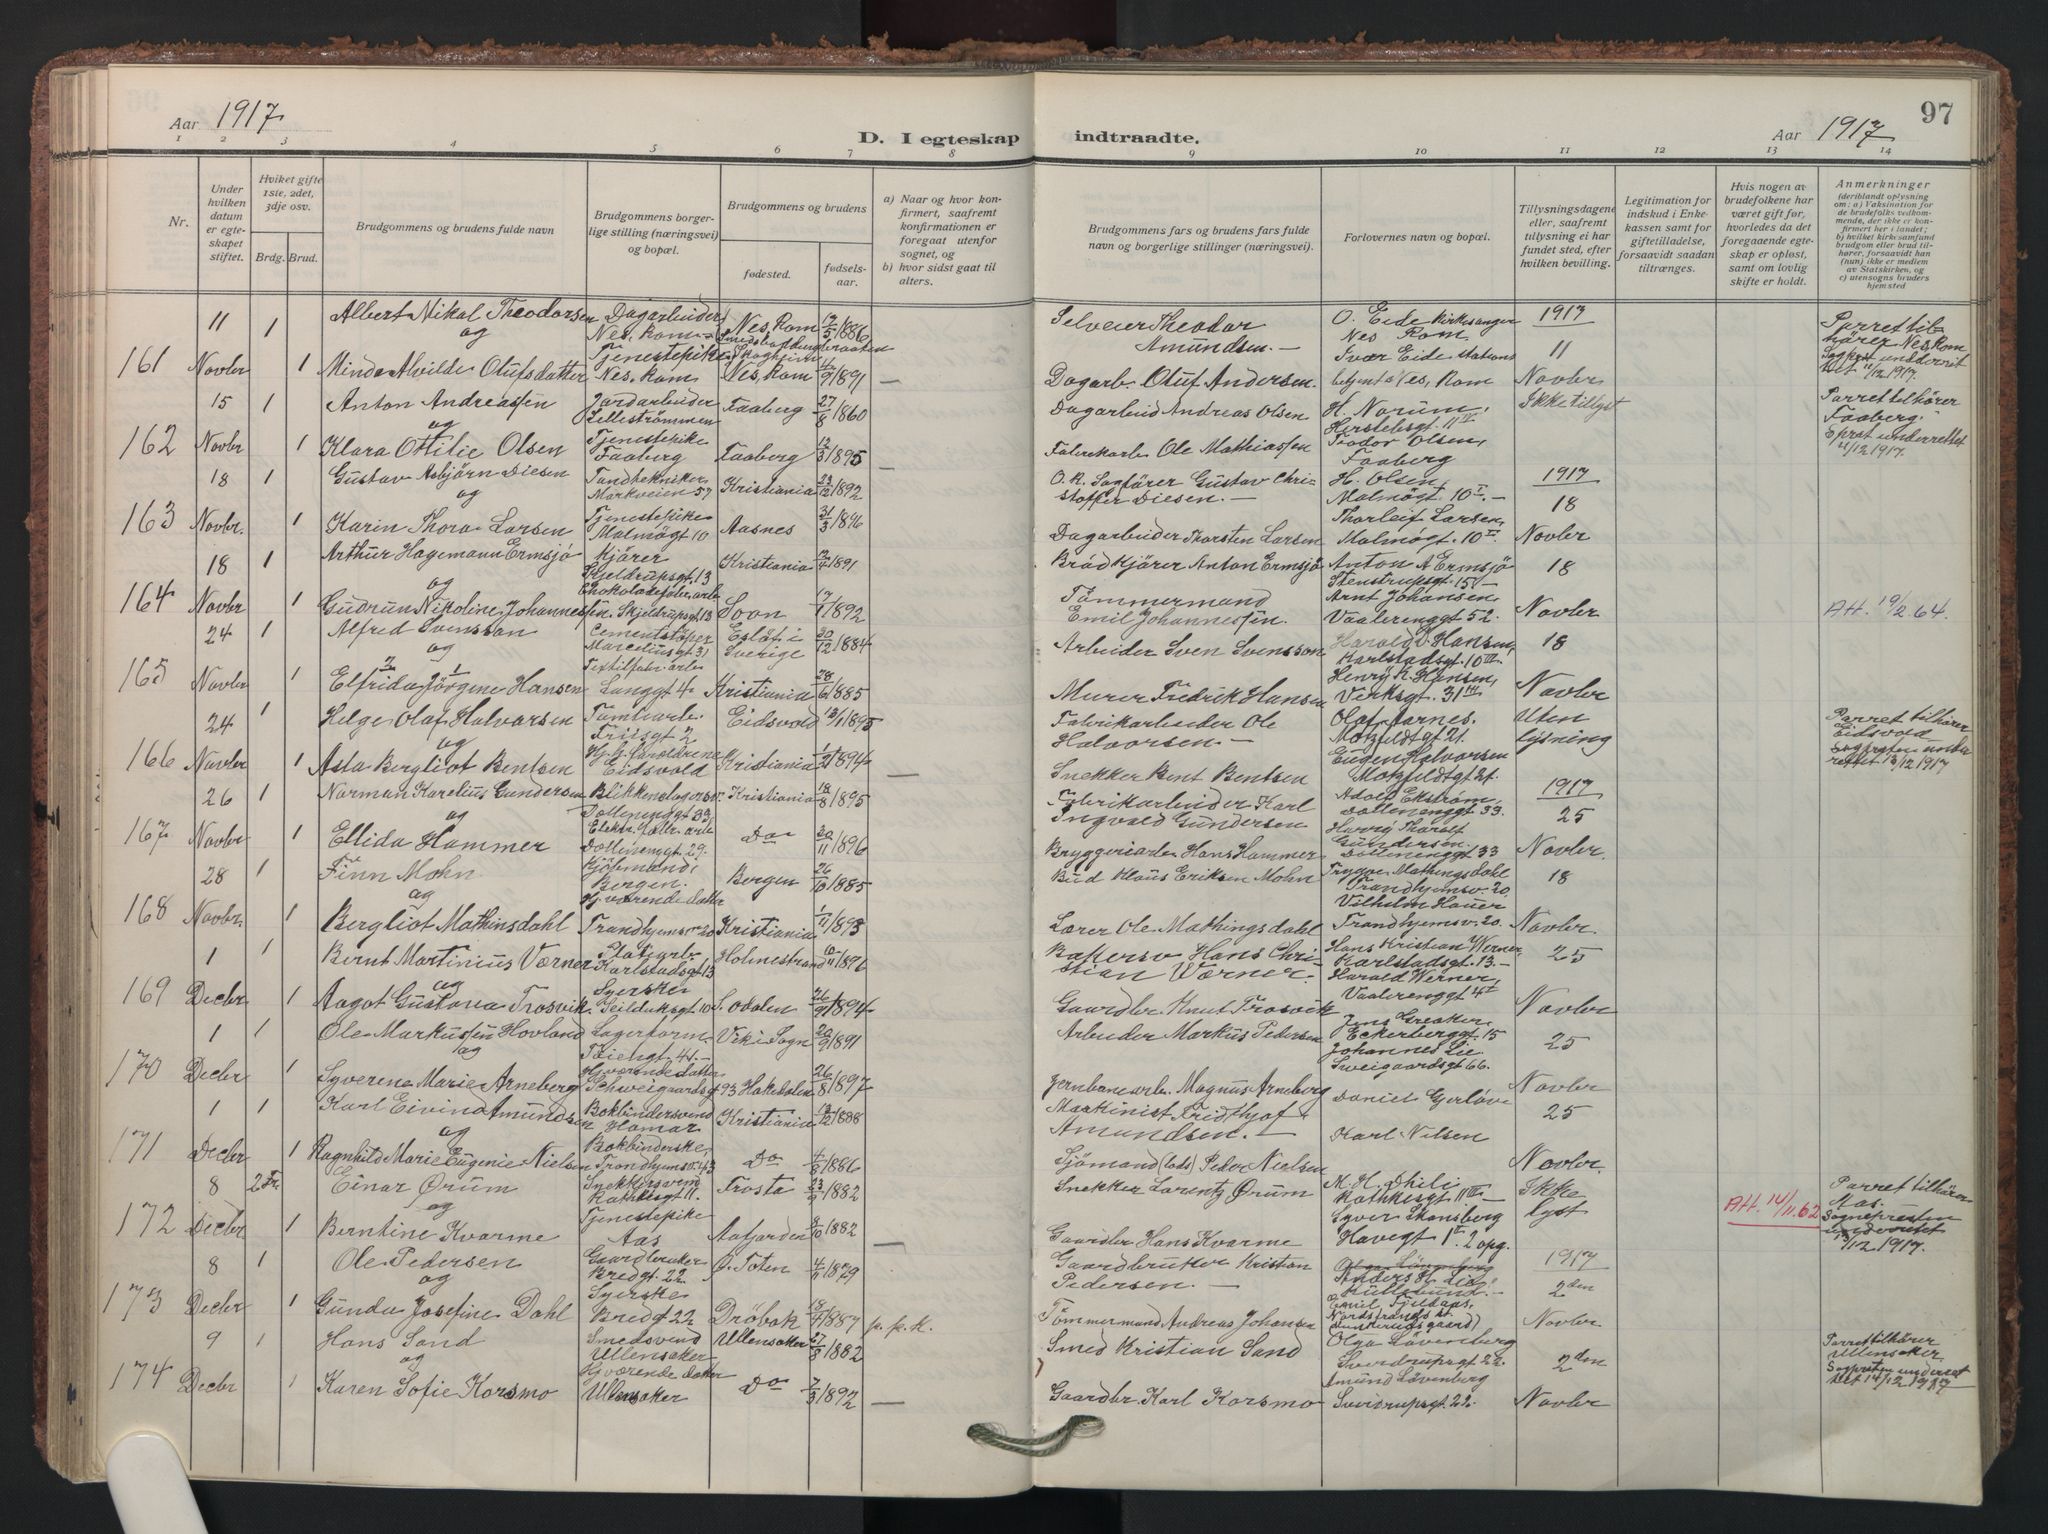 97
Aar 1917
D. I egteskap indtraadte.
Aar 1917
1 2 3 4 5 6 7 8 9 10 11 12 13 14
Nr.
Under hvilken datum er egteskapet stiftet.
Hviket gifte 1ste, 2det, 3dje osv.
Brdg. Brud.
Brudgommens og brudens fulde navn
Brudgommens borgerlige stilling (næringsvei) og bopæl.
Brudgommens og brudens
fødested.
fødselsaar.
a) Naar og hvor konfirmert, saafremt konfirmationen er foregaat utenfor sognet, og
b) hvor sidst gaat til alters.
Brudgommens fars og brudens fars fulde navn og borgerlige stillinger (næringsvei).
Forlovernes navn og bopæl.
Tillysningsdagene eller, saafremt tillysning ei har fundet sted, efter hvilken bevilling.
Legitimation for indskud i Enkekassen samt for giftetilladelse, forsaavidt saadan tiltrænges.
Hvis nogen av brudefolkene har været gift før, hvorledes da det foregaaende egteskap er opløst, samt om lovlig skifte er holdt.
Anmerkninger
(deriblandt oplysning om: a) Vaksination for de brudefolks vedkommende, der ikke er konfirmert her i landet; b) hvilket kirkesamfund brudgom eller brud tilhører, forsaavidt han (hun) ikke er medlem av Statskirken, og c) utensogns bruders hjemsted
11 1 Albert Nikal Theodorsen Dagarbeider Nes, Rom. Nes, Rom 1886 Selveier Theodor Amundsen. — O. Eide kirkesanger Nes Rom 1917
og
161 Novbr 1 Minda Alvilde Olufsdatter Tjenestepike Nes, Rom Nes, Rom 4/9 1891 — Dagarb. Oluf Andersen Ivar Eide stationsbetjent Nes, Rom 11 Novbr Parret tilhører Nes Rom 11/12 1917.
15 1 Anton Andreassen Jordarbeider Lillestrømmen Faaberg 27/8 1860 Dagarbeid Andreas Olsen H. Norum, Ikke tillyst Parret tilhører Faaberg.
og
162 Novbr 1 Klara Ottilie Olsen Tjenestepike Faaberg Faaberg 12/3 1895 — Fabrikarb. Ole Mathiassen Teodor Olsen, Faaberg 11/12 1917.
18 1 Gustav Asbjørn Diesen Tandtekniker Markveien 57 Kristiania 23/12 1892 O. R. Sagfører Gustav Christoffer Diesen. — H. Olsen, Malmøgt. 10 I. — 1917
og
163 Novbr. 1 Karin Thora Larsen Tjenestepike Malmøgt 10 Aasnes 31/3 1896 Dagarbeider Thorsten Larsen Thorleif Larsen, Malmøgt. 10 18 Novbr
18 1 Arthur Hagemann Ermsjø Kjører Skjeldrupsgt. 13 Kristiania 12/4 1891 Brødkjører Anton Ermsjø Anton A Ermsjø Stenstrupsgt 15 — 18
og
164 Novbr 1 Gudrun Nikoline Johannessen Chokoladefabr. arb. Skjeldrupsgt 13 Soon 17/1 1892 Tømmermand Emil Johannessen Arnt Johansen, Vaalerenggt 52. Novbr Att. 19/2 64.
24 1 Alfred Svensson Cementstøper Marcelíusgt 31 Esløf i Sverige 20/12 1884 Arbeider Sven Svensson Harald Hansen, Karlstadsgt. 10 III 18
og
165 Novbr 1 Elfrida Jørgene Hansen Textilfabr. arb. Langgt 4 Kristiania 28/6 1885 Murer Fredrik Hansen Henry K. Hansen, Verksgt. 31 III Novbr
24 1 Helge Olaf Halvorsen Tomtearb. Friisgt 2 Eidsvold 13/1 1895 Fabrikarbeider Ole Halvorsen. — Olaf Aarnes. Motzfeldtgt 21. Uten lysning Parret tilhører Eidsvold
og
166 Novbr 1 Asta Bergliot Bentsen Eidsvold Kristiania 1894 — Snekker Bent Bentsen Eugen Halvorsen Motzfeldtgt 21. 13/12 1917
26 1 Norman Karelius Gundersen Blikkenslagersv. Kristiania 18/8 1895 Fabrikarbeider Karl Ingvald Gundersen Adolf Ekstrøm, 1917 25
og
167 Novbr 1 Ellida Hammer Do 20/11 1896 Bryggeriarb. Hans Hammer Harry Thoralf Gundersen. Novbr.
28 1 Finn Mohn Kjøbmand i Bergen. Bergen 26/10 1885 Bud Klaus Eriksen Mohn Trygve Mathingsdahl Trondhjemsv. 20. 18
og
168 Novbr. 1 Bergliot Mathinsdahl Hj.værende datter Trondhjemsv 20 Kristiania 1/11 1893 Lærer Ole Mathingsdahl Vilhelm Hauer Trondhjemsv. 20. Novbr.
1 1 Bernt Martinius Værner Karlstadsgt 13 Holmestrand 10/11 1896 Bakersv Hans Christian Værner. — Hans Kristian Werner Karlstadsgt. 13. — 25
og
169 Decbr 1 Aagot Gustava Trosvik Syerske Seildukgt 10 S. Odalen 26/9 1894 Gaardbr Knut Trosvik Harald Werner, Vaalerenggt 4 Novbr
1 1 Ole Markussen Hovland Lagerform. Vik i Sogn 20/9 1891 Arbeider Markus Pedersen Jens Greaker Eckersberggt. 15 25
og
170 Decbr 1 Syverene Marie Arneberg Hj.værende datter Schweigaardsgt 93 Hakedalen 26/8 1897 Jernbanearb. Magnus Arneberg Johannes Lie Sveigaardsgt 66. Novbr
1 1 Karl Eivind Amundsen Bokbindersvend Hamar Kristiania 13/12 1888 Maskinist Fridthjof Amundsen. — Daniel Gerløv 25
og
171 Decbr 1 Ragnhild Marie Eugenie Nielsen Bokbinderske, Trondhjemsv. 43 Do 1886 Sjømand (lods) Peder Nielsen Karl Nilsen Novbr.
8 2 Fr. Einar Ørum Snekkersvend Rathkesgt 11. Frosta 23/9 1882 Snekker Lorentz Ørum Rathkesgt 11 III — Ikke lyst Parret tilhører Aas.
og
172 Decbr 1 Berntine Kvarme Tjenestepike Aas Aafjorden 8/10 1882 — Gaardbr Hans Kvarme Syver Skansberg Havegt 1 II. 2 opg. Att. 14/11. 62 Sognepresten 13/12 1917.
8 1 Ole Pedersen Gaardbruker Bredgt. 22 Ø. Toten 4/11 1879 Gaardbruker Kristian Pedersen. — 1917 2den
og
173 Decbr 1 Gunda Josefine Dahl Syerske Bredgt 22 Drøbak 1887 p. p. k. Tømmermand Andreas Johansen Novbr
9 1 Hans Sand Smedsvend Ullensaker Ullensaker 27/8 1882 Smed Kristian Sand Olga Løvenberg Sverdrupsgt 22. 2den Parret tilhører Ullensaker
og
174 Decbr 1 Karen Sofie Korsmo Hj.værende datter Ullensaker Do 7/3 1892 — Gaardbr. Karl Korsmo Amund Løvenberg Sverdrupsgt. 22. Novbr 14/12 1917